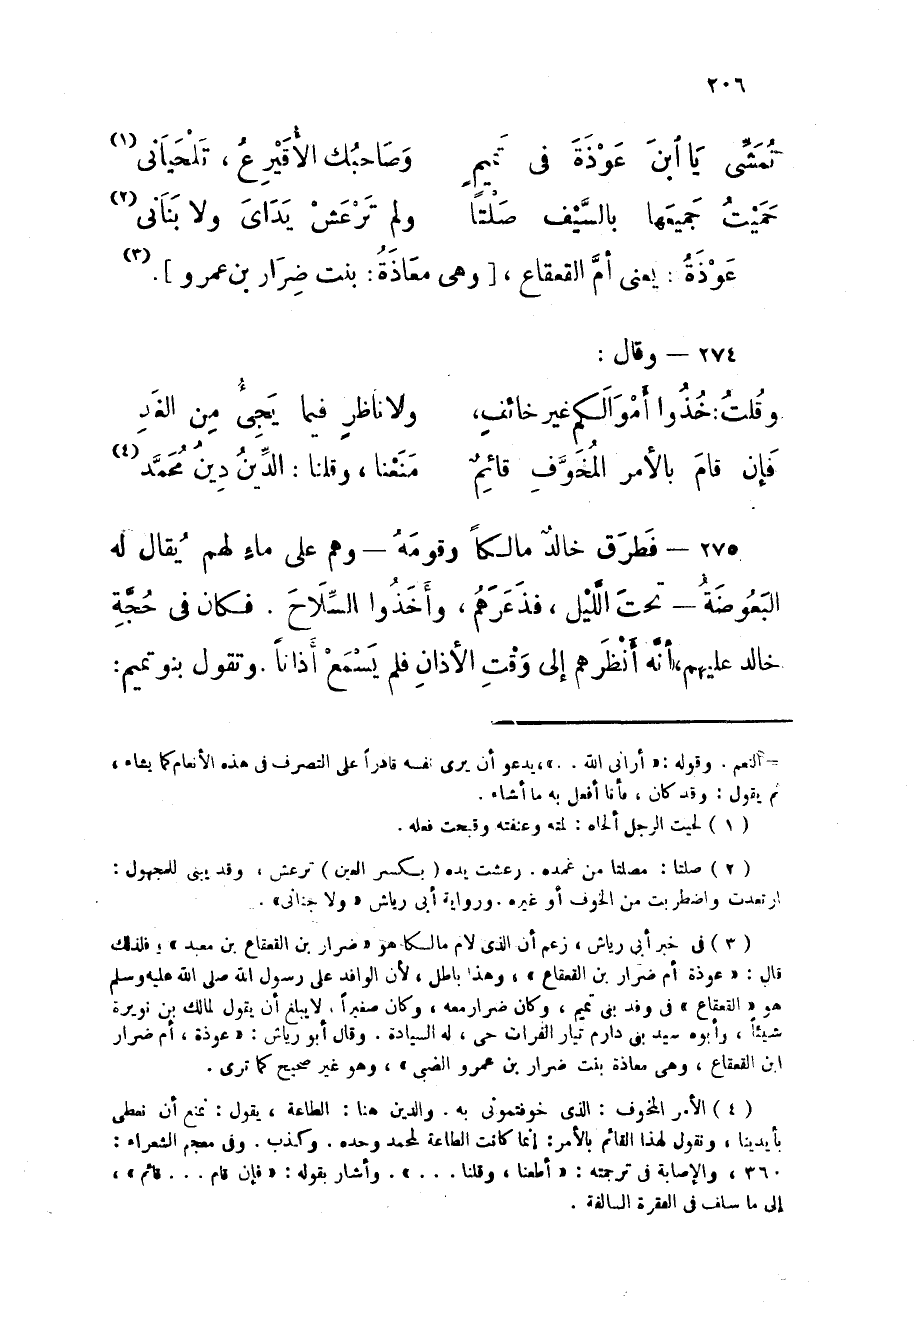 ٢٠٦
تُمَشِّى يَا ٱبنَ عَوْذَةَ فى تَمِيمٍ وَصَاحِبُك الأُقَيْرِعُ ، تَلْحَيَانى (١)
حَمَيْتُ جَمِيعَها بالسَّيْف صَلْتًا ولم تَرْعَشْ يَدَاىَ ولا بَنَانى (٢)
عَوْذَةُ : يعنى أمَّ القعقاع ، [ وهى معَاذَةُ : بنت ضِرَار بن عمرو ] . (٣)
٢٧٤ — وقال :
وقُلتُ : خُذُوا أَمْوَالَكم غير خائفٍ ، ولا ناظرٍ فيما يَجِىُّ مِن الغَدِ
فَإِن قامَ بالأمر المُخَوَّفِ قائِمٌ مَنَعْنا ، وقلنا : الدِّينُ دِينُ مُحَمَّد (٤)
٢٧٥ — فَطَرَق خالدٌ مالكاً وقومَهُ — وهم على ماءٍ لهم يُقال له
البَعُوضَةُ — تحتَ اللَّيْل ، فذَعَرَهُم ، وأَخَذُوا السِّلَاحَ . فكان فى حُجَّةِ
خالد عليهم ، أنَّه أنْظَرهم إلى وَقْتِ الأذانِ فلم يَسْمَعْ أَذاناً . وتقول بنو تميم :
= النعم . وقوله : « أرانى الله . . » ، يدعو أن يرى نفسه قاهراً على التصرف فى هذه الأنعام كما يشاء ،
ثم يقول : وقد كان ، فأنا أفعل به ما أشاء .
( ١ ) لحيت الرجل ألحاه : لمته وعنفته وقبحت فعله .
( ٢ ) صلتا : مصلتا من غمده . رعشت يده ( بكسر العين ) ترعش ، وقد يبنى للمجهول :
ارتعدت واضطربت من الخوف أو غيره . ورواية أبى رياش « ولا جنانى » .
( ٣ ) فى خبر أبى رياش ، زعم أن الذى لام مالكا هو « ضرار بن القعقاع بن معبد » ؛ فلذلك
قال : « عوذة أم ضرار بن القعقاع » ، وهذا باطل ، لأن الوافد على رسول الله صلى الله عليه وسلم
هو « القعقاع » فى وفد بنى تميم ، وكان ضرار معه ، وكان صغيراً . لا يبلغ أن يقول لمالك بن نويرة
شيئاً ، وأبوه سيد بنى دارم تيار الفرات حى ، له السيادة . وقال أبو رياش : « عوذة ، أم ضرار
ابن القعقاع ، وهى معاذة بنت ضرار بن عمرو الضبى » ، وهو غير صحيح كما ترى .
( ٤ ) الأمر المخوف : الذى خوفتمونى به . والدين هنا : الطاعة ، يقول : نمنع أن نعطى
بأيدينا ، ونقول لهذا القائم بالأمر : إنما كانت الطاعة لمحمد وحده . وكذب . وفى معجم الشعراء :
٣٦٠ ، والإصابة فى ترجمته : « أطعنا ، وقلنا . . . » . وأشار بقوله : « فإن قام . . . قائم » ،
إلى ما سلف فى الفقرة السالفة .